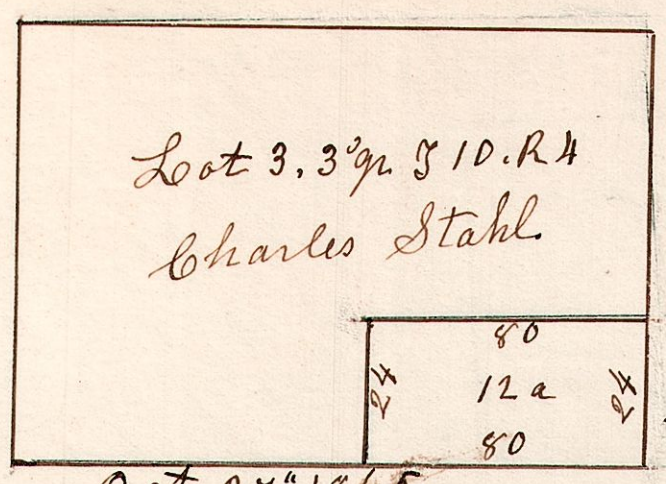 Lot 3. 3ᵈ qr. T 10. R 4
Charles Stahl.
80
24 12 a 24
80